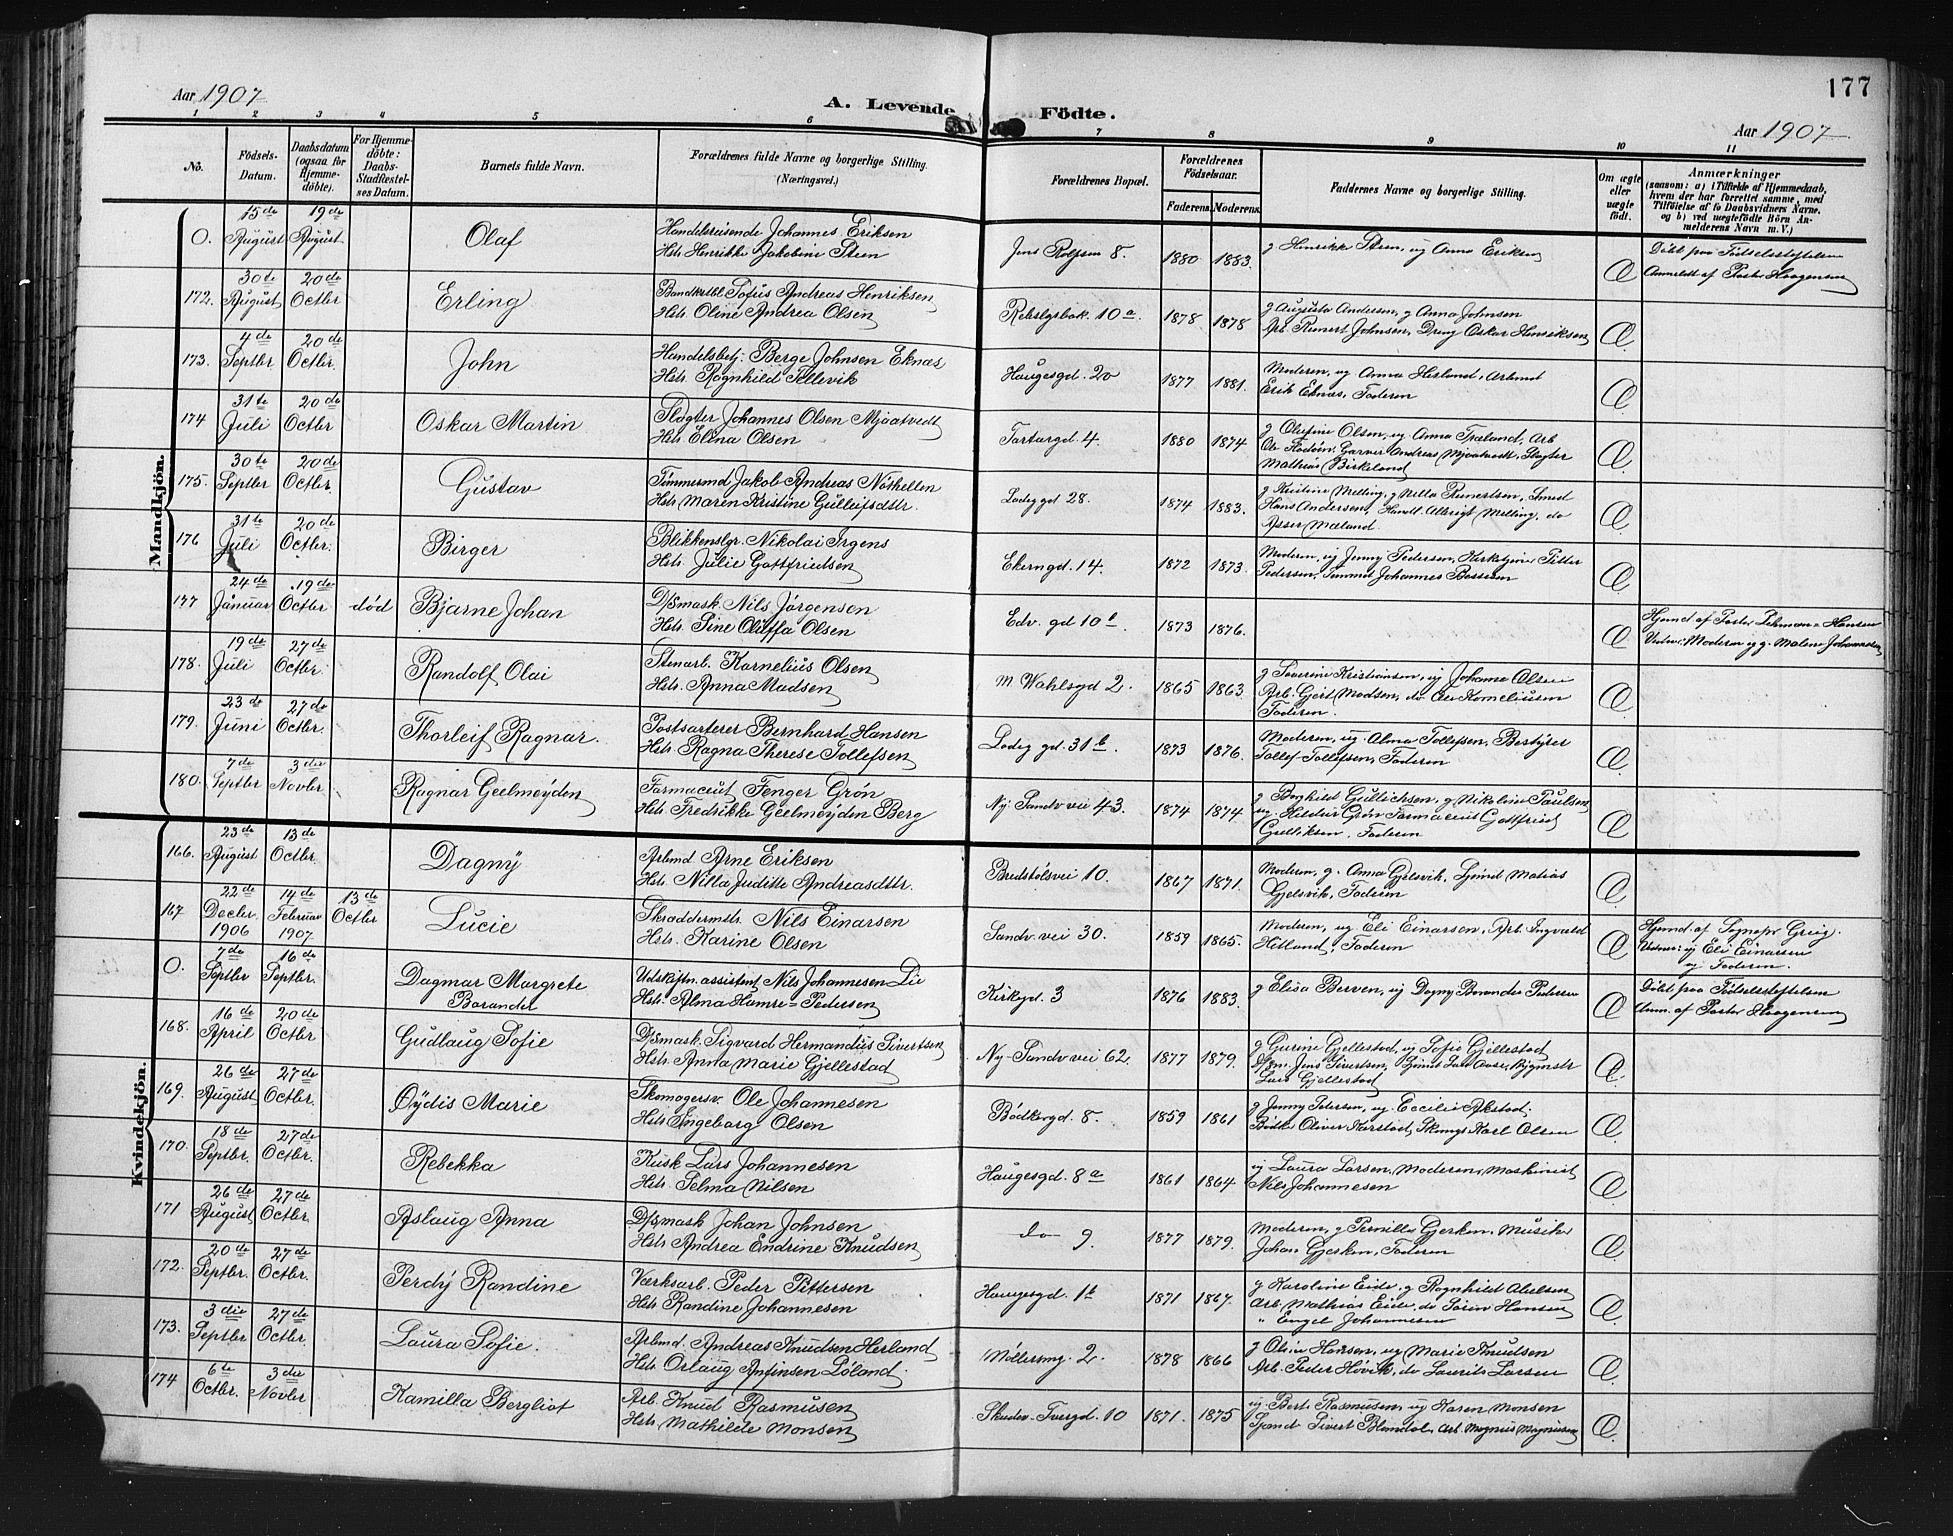 177
Aar 1907
A. Levende Födte.
Aar 1907
1 2 3 4 5 6 7 8 9 10 11
No.
Födsels-
Datum.
Daabsdatum
(ogsaa for
Hjemme-
döbte).
For Hjemme-
döbte:
Daabs-
Stadfæstel-
ses Datum.
Barnets fulde Navn.
Forældrenes fulde Navne og borgerlige Stilling.
(Næringsvei.)
Forældrenes Bopæl.
Forældrenes
Födselsaar.
Faderens. Moderens.
Faddernes Navne og borgerlige Stilling.
Om ægte
eller
uægte
födt.
Anmærkninger
(saasom: a) i Tilfælde af Hjemmedaab,
hvem der har forrettet samme, med
Tilföielse af to Daabsvidners Navne,
og b) ved uegtefödte Börn An-
melderens Navn m. V.)
Mandkjön.
0. 15de August 19de August Olaf
Handelsreisende Johannes Eriksen
Hst. Henrikke Jakobine Steen
Jens Rolfsen 8. 1880 1883.
g Henrikke Steen, ug Anna Eriksen
Æ
Döbt paa Födselsstiftelsen
Anmeldt af Pastor Haagensen
172. 30te August 20de Octbr Erling
Sofus Andreas Henriksen
Hst. Oline Andrea Olsen
10a. 1878 1878
g Augusta Andersen, g Anna Johnsen
Arb. Reinert Johnsen, Dreng Oskar Henriksen
Æ
173. 4de Septbr 20de Octbr John
Handelsbetj. Berge Johnsen Eknæs
Hst. Ragnhild Tellevik
Haugesgd. 20 1877 1881.
Moderen, ug Anna Herland, Arbmd
Erik Eknæs, Faderen
Æ
174 31te Juli 20de Octbr Oskar Martin
Slagter Johannes Olsen Mjaatvedt
Hst. Elina Olsen
Tartargd. 4. 1880 1874
g Olufine Olsen, ug Anna Træland, Arb
Garver Andreas Mjaatvedt, Slagter
Mathias Birkeland
Æ
175. 30te Septbr 20de Octbr. Gustav
Tömmermd Jakob Andreas Nöthellen
Hst. Maren Kristine Gulleifsdtr.
Lodeg gd 28. 1874 1883.
g Kristine Melling, g Nella Reinertsen, Smed
Hans Andersen, Handl. Albrigt Melling, do
Asser Mæland
Æ
176 31te Juli 20de Octbr. Birger
Blikkenslgr. Nikolai Irgens
Hst. Julie Gottfriedsen
Ekerngd. 14. 1872 1873.
Moderen, ug Jenny Pedersen, Kirketjener Pitter
Pedersen, Tömmerd Johannes
Æ
177 24de Januar 19de Octbr død Bjarne Johan
D/Smask. Nils Jörgensen
Hst. Sine Oleffa Olsen
Edv. gd 10 1873 1876.
Æ
Hjemd af Pastor Lehman Hansen
Vidner: Moderen og g. Malene Johannesen
178. 19de Juli 27de Octbr. Randolf Olai
Stenarb. Kornelius Olsen
Hst. Anna Madsen
M. Wahlsgd 2. 1865 1863.
g Severine Kristiansen, ug Johanna Olsen
Arb. Gjert Madsen, do Ole Korneliusen
Faderen.
Æ
179. 23de Juni 27de Octbr. Thorleif Ragnar.
Postsorterer Bernhard Hansen
Hst. Ragna Therese Tollefsen
Lodeg gd. 31b. 1873 1876.
Moderen, ug. Alma Tollefsen, Bestyrer
Tollef Tollefsen, Faderen
Æ
180. 7de Septbr 3die Novbr Ragnar Geelmeÿden
Farmaceut Fenger Grön
Hst. Fredrikke Geelmeÿden Berg
Ny Sandv vei 43. 1874 1874
g Borghild Gullichsen, g Nikoline Paulsen,
ug. Hildur Grön Farmaceut Gottfried
Gulliksen, Faderen
Æ
Kvindekjön.
166. 23de August 13de Octbr. Dagnÿ
Arbmd Arne Eriksen
Hst. Nilla Juditte Andreasdttr.
Bredstölsvei 10. 1867 1871.
Moderen, g. Anna Gjelsvik, Sjømd Matias
Gjelsvik, Faderen
Æ
167 22de Decbr. 1906 14de Februar 1907. 13de Octbr Lucie
Skræddermstr. Nils Einarsen
Hst. Karine Olsen
Sandv. vei 30. 1859 1865.
Moderen, ug Eli Einarsen, Arb. Ingvald
Hitland, Faderen
Æ
Hjemd. af Sognepr Grieg.
Vidner: ug Eli Einarsen
og Faderen.
0. 7de Septbr 16de Septbr. Dagmar Margrete
Barandel
Udskiftn. assistent Nils Johannesen Lie
Hst. Alma Hamre-Pedersen
Kirkegd. 3 1876 1883.
g Elisa Berven, ug Dagny Pedersen
Æ
Döbt paa Födselsstiftelsen
Anm. af Pastor Haagensen
168. 16de April 20de Octbr Gudlaug Sofie
D/Smask. Sigvard Hermandus Sivertsen
Hst. Anna Marie Gjellestad
Ny Sandv vei 62. 1877 1879.
g Gurine Gjellestad, ug Sofie Gjellestad
Jens Sivertsen,
Lars Gjellestad
Æ
169. 26de August 27de Octbr. Öÿdis Marie
Skomagersv. Ole Johannesen
Hst. Ingeborg Olsen
Bödkergd. 8. 1859 1861
g Jenny Petersen, ug. Cecilie Akstad.
Bødker Oliver Karstad, Skomgs Karl Olsen
Æ
170. 18de Septbr. 27de Octbr. Rebekka
Kusk Lars Johannesen
Hst. Selma Nilsen
Haugesgd. 8a 1861 1864
ug Laura Larsen, Moderen, Maskinist
Nils Johannesen
Æ
171 26de August 27de Octbr. Aslaug Anna
D/Smask Johan Johnsen
Hst. Andrea Endrine Knudsen
do 9. 1877 1879.
Moderen, g Pernille Gjerken, Musiker
Johan Gjerken, Faderen
Æ
172. 20de Septbr. 27de Octbr. Perdÿ Randine
Værksarb. Peder Pittersen
Hst. Randine Johannesen
Haugesgd. 1b 1871 1867.
g Karoline Eide, g Ragnhild Abelsen
Arb. Mathias Eide, do Sören Hansen
" Engel Johannesen
Æ
173. 3die Septbr 27de Octbr. Laura Sofie.
Arbmd. Andreas Knudsen Herland
Hst. Orlaug Anfinsen Löland.
Möllersmg. 2. 1878 1866
g Oline Hansen, ug Marie Knudsen
Arb. Peder Hövik, do Laurits Larsen
Æ
174 6te Octbr. 3die Novbr Kamilla Bergliot
Arb. Knud Rasmusen
Hst. Mathilde Monsen
Skudev-Tvergd. 10 1871. 1875
ug. Bert. Rasmusen, ug Karen Monsen
Sjømd Sivert Blomdal, Arb. Magnus Magnusen
Æ